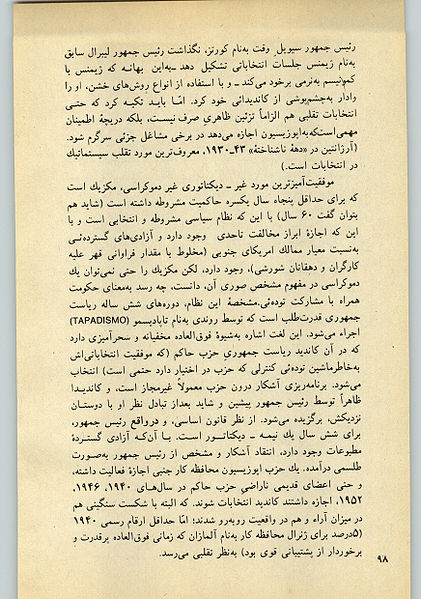 رئیس جمهور سیویل وقت به‌نام کورتز، نگذاشت رئیس جمهور لیبرال سابق
به‌نام زیمنس جلسات انتخاباتی تشکیل دهد ــ به‌این بهانه که زیمنس با
کمونیسم به‌نرمی برخورد می‌کند ــ و با استفاده از انواع روش‌های خشن، او را
وادار به‌چشم‌پوشی از کاندیدائی خود کرد. امّا باید تکیه کرد که حتی
انتخابات تقلبی هم الزاماً تزئین ظاهری صرف نیست، بلکه دریچهٔ اطمینان
مهمی‌است‌که‌به‌اپوزیسیون اجازه می‌دهد در برخی مشاغل جزئی سرگرم شود.
(آرژانتین در «دههٔ ناشناختهٔ» ۴۳ـ۱۹۳۰، معروف‌ترین مورد تقلب سیستماتیك
در انتخابات است.)
موفقیت‌آمیزترین مورد غیر ــ دیکتاتوری غیر دموکراسی، مکزیك است
که برای حداقل پنجاه سال یکسره حاکمیت مشروطه داشته است (شاید هم
بتوان گفت ۶۰ سال) با این که نظام سیاسی مشروطه و انتخابی است و با
این که اجازهٔ ابراز مخالفت تاحدی وجود دارد و آزادی‌های گسترده‌ئی
به‌نسبت معیار ممالك امریکای جنوبی (مخلوط با مقدار فراوانی قهر علیه
کارگران و دهقانان شورشی)، وجود دارد، لکن مکزیك را حتی نمی‌توان یك
دموکراسی در مفهوم مشخص صوری آن، دانست، چه رسد به‌معنای حکومت
همراه با مشارکت توده‌ئی.مشخصهٔ این نظام، دوره‌های شش ساله ریاست
جمهوری قدرت‌طلب است که توسط روندی به‌نام تاپادیسمو (TAPADISMO)
اجراء می‌شود. این لغت اشاره به‌شیوهٔ فوق‌العاده مخفیانه و سحرآمیزی دارد
که در آن کاندید ریاست جمهوری حزب حاکم (که موفقیت انتخاباتی‌اش
به‌خاطرماشین توده‌ئی کنترلی که حزب در اختیار دارد حتمی است) انتخاب
می‌شود. برنامه‌ریزی آشکار درون حزب معمولاً غیرمجاز است، و کاندیدا
ظاهراً توسط رئیس جمهور پیشین و شاید بعداز تبادل نظر او با دوستان
نزدیکش، برگزیده می‌شود. از نظر قانون اساسی، و درواقع رئیس جمهور،
برای شش سال یك نیمه ــ دیکتاتور است. با آن‌که آزادی گستردهٔ
مطبوعات وجود دارد، انتقاد آشکار و مشخص از رئیس جمهور به‌صورت
طلسمی درآمده. یك حزب اپوزیسیون محافظه کار جنبی اجازهٔ فعالیت داشته،
و حتی اعضای قدیمی ناراضی حزب حاکم در سال‌های ۱۹۴۰، ۱۹۴۶،
۱۹۵۲، اجازه داشتند کاندید انتخابات شوند. که البته با شکست سنگینی هم
در میزان آراء و هم در واقعیت روبه‌رو شدند؛ امّا حداقل ارقام رسمی ۱۹۴۰
(۵درصد برای ژنرال محافظه کار به‌نام آلمازان که زمانی فوق‌العاده پرقدرت و
برخوردار از پشتیبانی قوی بود) به‌نظر تقلبی می‌رسد.
۹۸